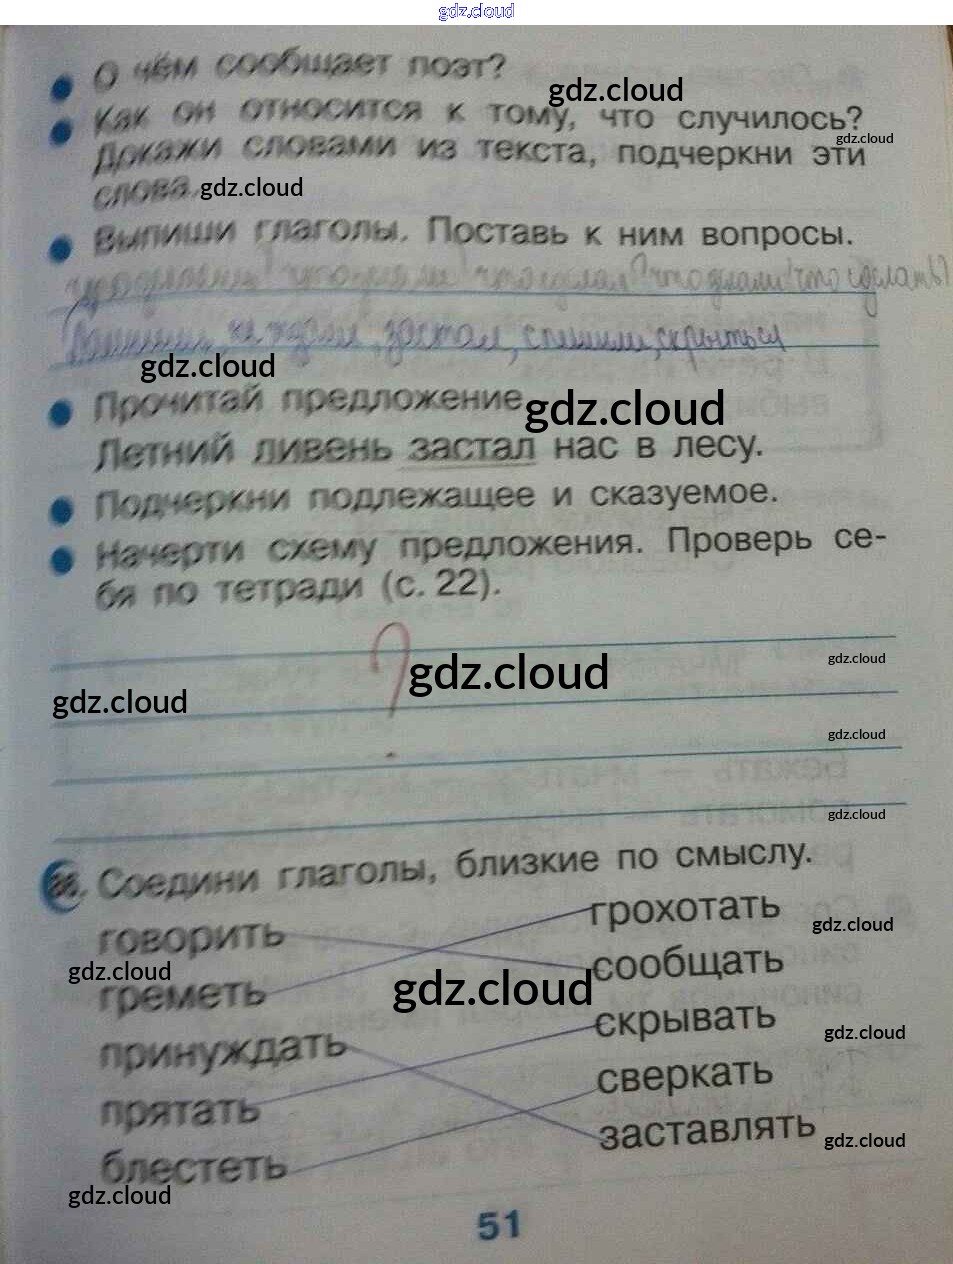 gdz.cloud
О чём сообщает поэт?
gdz.cloud
Как он относится к тому, что случилось?
gdz.cloud
Докажи словами из текста, подчеркни эти
слова.
gdz.cloud
Выпиши глаголы. Поставь к ним вопросы.
что сделал? что делали? что сделать?
не ждали, застал, спешили, скрыться
gdz.cloud
Прочитай предложение
gdz.cloud
Летний ливень застал нас в лесу.
Подчеркни подлежащее и сказуемое.
Начерти схему предложения. Проверь се-
бя по тетради (с. 22).
?
gdz.cloud
gdz.cloud
gdz.cloud
gdz.cloud
gdz.cloud
Соедини глаголы, близкие по смыслу.
говорить грохотать
gdz.cloud
gdz.cloud
греметь сообщать
gdz.cloud
принуждать скрывать
gdz.cloud
прятать сверкать
блестеть заставлять
gdz.cloud
gdz.cloud
51